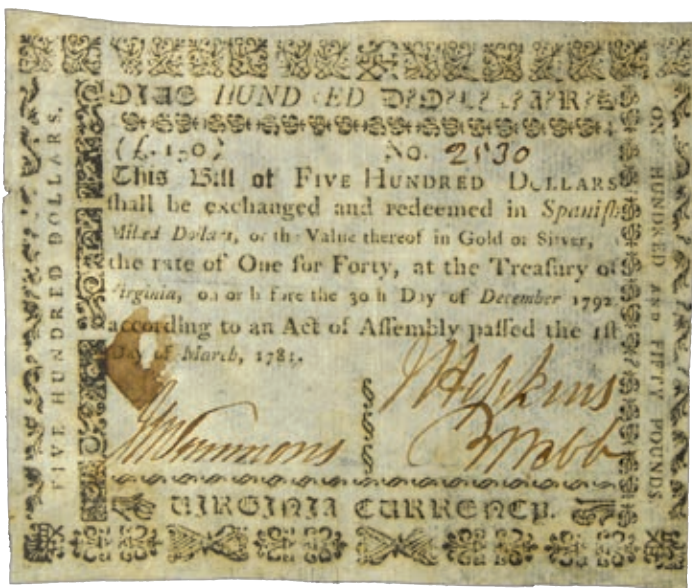 FIVE HUNDRED DOLLARS
(£.150) No. 2530
This Bill of FIVE HUNDRED DOLLARS
ſhall be exchanged and redeemed in Spaniſh
Milled Dollars, or the Value thereof in Gold or Silver,
the rate of One for Forty, at the Treaſury of
Virginia, on or before the 30th Day of December 1792
according to an Act of Aſſembly paſſed the 1ſt
Day of March, 1781.
J Hopkins
B Webb
VIRGINIA CURRENCY.
FIVE HUNDRED DOLLARS.
ONE HUNDRED AND FIFTY POUNDS